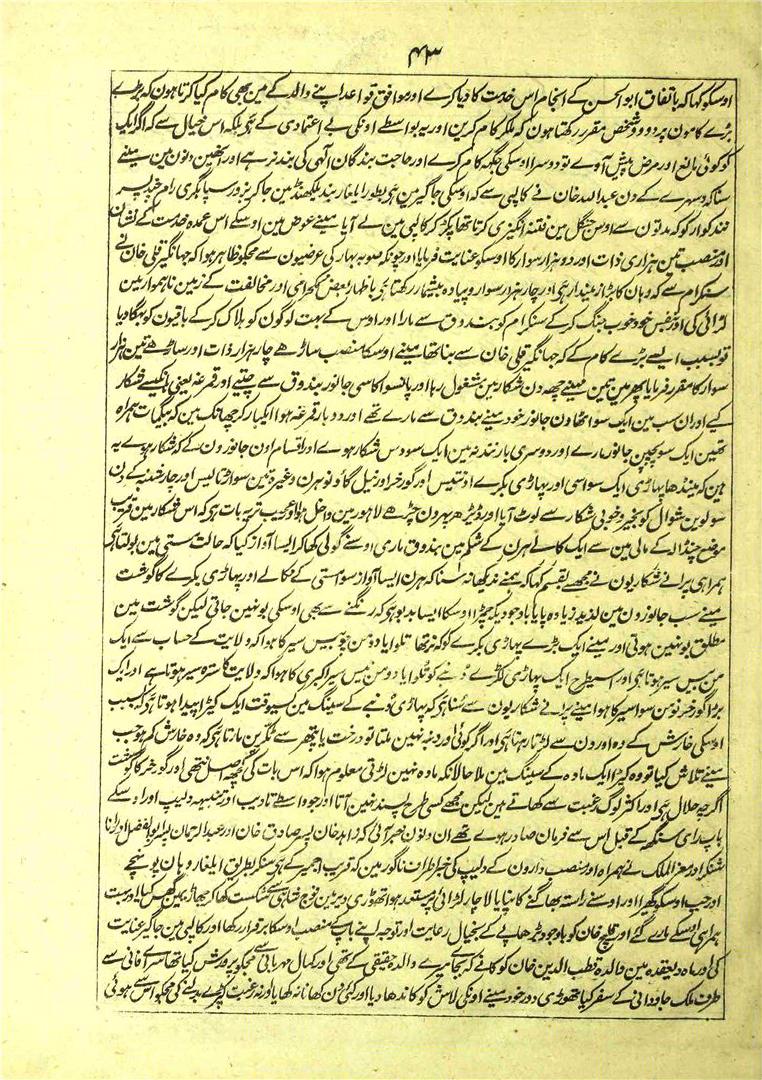 ۴۳
اوسکو کہا کہ باتفاق ابو الحسن کے انجام اس خدمت کا دیا کرے اور موافق قواعد اپنے والد کے مین بھی کام کیا کرتا ہون کہ بڑے
بڑے کامون پر دو دو شخص مقرر رکھتا ہون کہ ملکر کام کرین اور یہ بواسطے اونکی بے اعتمادی کے نہین بلکہ اس خیال سے کہ اگر ایک
کو کوئی مانع اور مرض پیش آوے تو دوسرا اوسکی جگہہ کام کرے اور حاجت بندگان الٰہی کی بند نرہے اور انھین دنون مین مینے
سنا کہ دسہرے کے دن عبداللہ خان نے کالپی سے کہ اوسکی جاگیر مین ہی بطور ایلغار بندیلکھنڈ مین جا کر بزور سپاہگری رام چند پسر
نندکوار کو کہ مدتون سے اوس جنگل مین فتنہ انگیزی کرتا تھا پکڑ کر کالپی مین لے آیا مینے عوض مین اوسکے اس عمدہ خدمت کے نشان
اور منصب تین ہزاری ذات اور دو ہزار سوار کا اوسکو عنایت فرمایا اور چونکہ صوبہ بہار کی عرضیون سے مجکو ظاہر ہوا کہ جہانگیر قلی خان نے
سنگرام سے کہ وہان کا بڑا زمیندار ہی اور چار ہزار سوار و پیادہ بیشمار رکھتا ہی باظہار بعض نمکحرامی اور مخالفت کے زمین ناہموار مین
لڑائی کی اور بنفس خود خوب جنگ کر کے سنگرام کو بندوق سے مارا اور اوس کے بہت لوگون کو ہلاک کر کے باقیون کو بھگا دیا
تو بسبب ایسے بڑے کام کے کہ جہانگیر قلی خان سے بنا تھا مینے اوسکا منصب ساڑھے چار ہزار ذات اور ساڑھے تین ہزار
سوار کا مقرر فرمایا پھر مین تین مہینے چھہ دن شکار مین مشغول رہا اور پانسو اکاسی جانور بندوق سے چیتے اور قمرغہ یعنی ہانکیسے شکار
کیے اور ان سب مین ایک سو اٹھاون جانور خود مینے بندوق سے مارے تھے اور دو بار قمرغہ ہوا ایکبار کرچھاک مین کہ بیگمات ہمراہ
تھین ایک سو پچپن جانور مارے اور دوسری بار نندنہ مین ایک سو دس شکار ہوے اور اقسام اون جانورون کے کہ شکار ہوے یہ
ہین کہ مینڈھا پہاڑی ایک سو اسی اور پہاڑی بکرے اونتیس اور گورخر اور نیل گاؤ نو ہرن وغیرہ تین سو اڑتالیس اور چارشنبہ کے دن
سولوین شوال کو بخیر و خوبی شکار سے لوٹ آیا اور ڈیڑھ پہر دن چڑھے لاہور مین داخل ہوا اور عجیب تر یہ بات ہی کہ اس شکار مین قریب
موضع چنڈالہ کے مالی مین سے ایک کالے ہرن کے شکم مین بندوق ماری اوسنے گولی کھا کر ایسا آواز کیا کہ حالت مستی مین بولتا ہی
ہمراہی پرانے شکاریون نے مجھسے بقسم کہا کہ ہمنے ندیکھا نہ سنا کہ ہرن ایسا آواز سواے مستی کے نکالے اور پہاڑی بکرے کا گوشت
مینے سب جانورون مین لذیذ زیادہ پایا باوجودیکہ چمڑا اوسکا ایسا بدبو ہی کہ رنگنے سے بھی اوسکی بو نہین جاتی لیکن گوشت مین
مطلق بو نہین ہوتی اور مینے ایک بڑے پہاڑی بکرے کو کہ نر تھا تلوایا دو من چوبیس سیر کا ہوا کہ ولایت کے حساب سے ایک
من بیس سیر ہوتا ہی اور اسیطرح ایک پہاڑی لکڑے دنبے کو تلوایا دو من تیس سیر اکبری کا ہوا کہ ولایت کا سترہ سیر ہوتا ہے اور ایک
بڑا گورخر نو من سوا سیر کا ہوا مینے پرانے شکاریون سے سنا ہی کہ پہاڑی دُنبے کے سینگ مین سیوقت ایک کیڑا پیدا ہوتا ہی کہ بسبب
اوسکی خارش کے وہ اورون سے لڑتا رہتا ہی اور اگر کوئی اور دنبہ نہین ملتا تو درخت یا پتھر سے ٹکرین مارتا ہی کہ وہ خارش کم ہو جب
مینے تلاش کیا تو وہ کیڑا ایک مادہ کے سینگ مین ملا حالانکہ مادہ نہین لڑتی معلوم ہوا کہ اس بات کی کچھہ اصل نتھی اور گورخر کا گوشت
اگرچہ حلال ہی اور اکثر لوگ رغبت سے کھاتے ہین لیکن مجھے کسی طرح پسند نہین آتا اور جو واسطے تادیب اور تنبیہ دلیپ اور اوسکے
باپ رای سنگھ کے قبل اس سے فرمان صادر ہوے تھے ان دنون خبر آئی کہ زاہد خان پسر صادق خان اور عبدالرحمان پسر ابوالفضل اور رانا
شنکر اور معز الملک نے ہمراہ اور منصب دارون کے دلیپ کی خبر اطراف ناگور مین کہ قریب اجمیر کے ہی سنکر بطریق ایلغار وہان پونہچے
اور جب اوسکو گھیرا اور اوسنے راستہ بھاگنے کا نپایا لاچار لڑائی پر مستعد ہوا تھوڑی دیر مین فوج شاہی سے شکست کھا کر پہاڑ مین گھس گیا اور بہت
ہمراہی اوسکے مارے گئے اور قلیچ خان کو باوجود بڑھاپے کے بخیال رعایت اور توجہ اپنے باپ کے منصب اوسکا برقرار رکھا اور کالپی مین جاگیر عنایت
کی اور ماہ ذیقعدہ مین والدہ قطب الدین خان کو کا نے کہ بجاے میرے والدہ حقیقی کے تھی اور کمال مہربانی سے مجکو پرورش کیا تھا سراے فانی سے
طرف ملک جاودانی کے سفر کیا تھوڑی دور خود مینے اونکی لاش کو کاندھا دیا اور کئی دن کھانا نہ کھایا اور نہ رغبت کپڑے بدلنے کی مجکو اس سے ہوئی